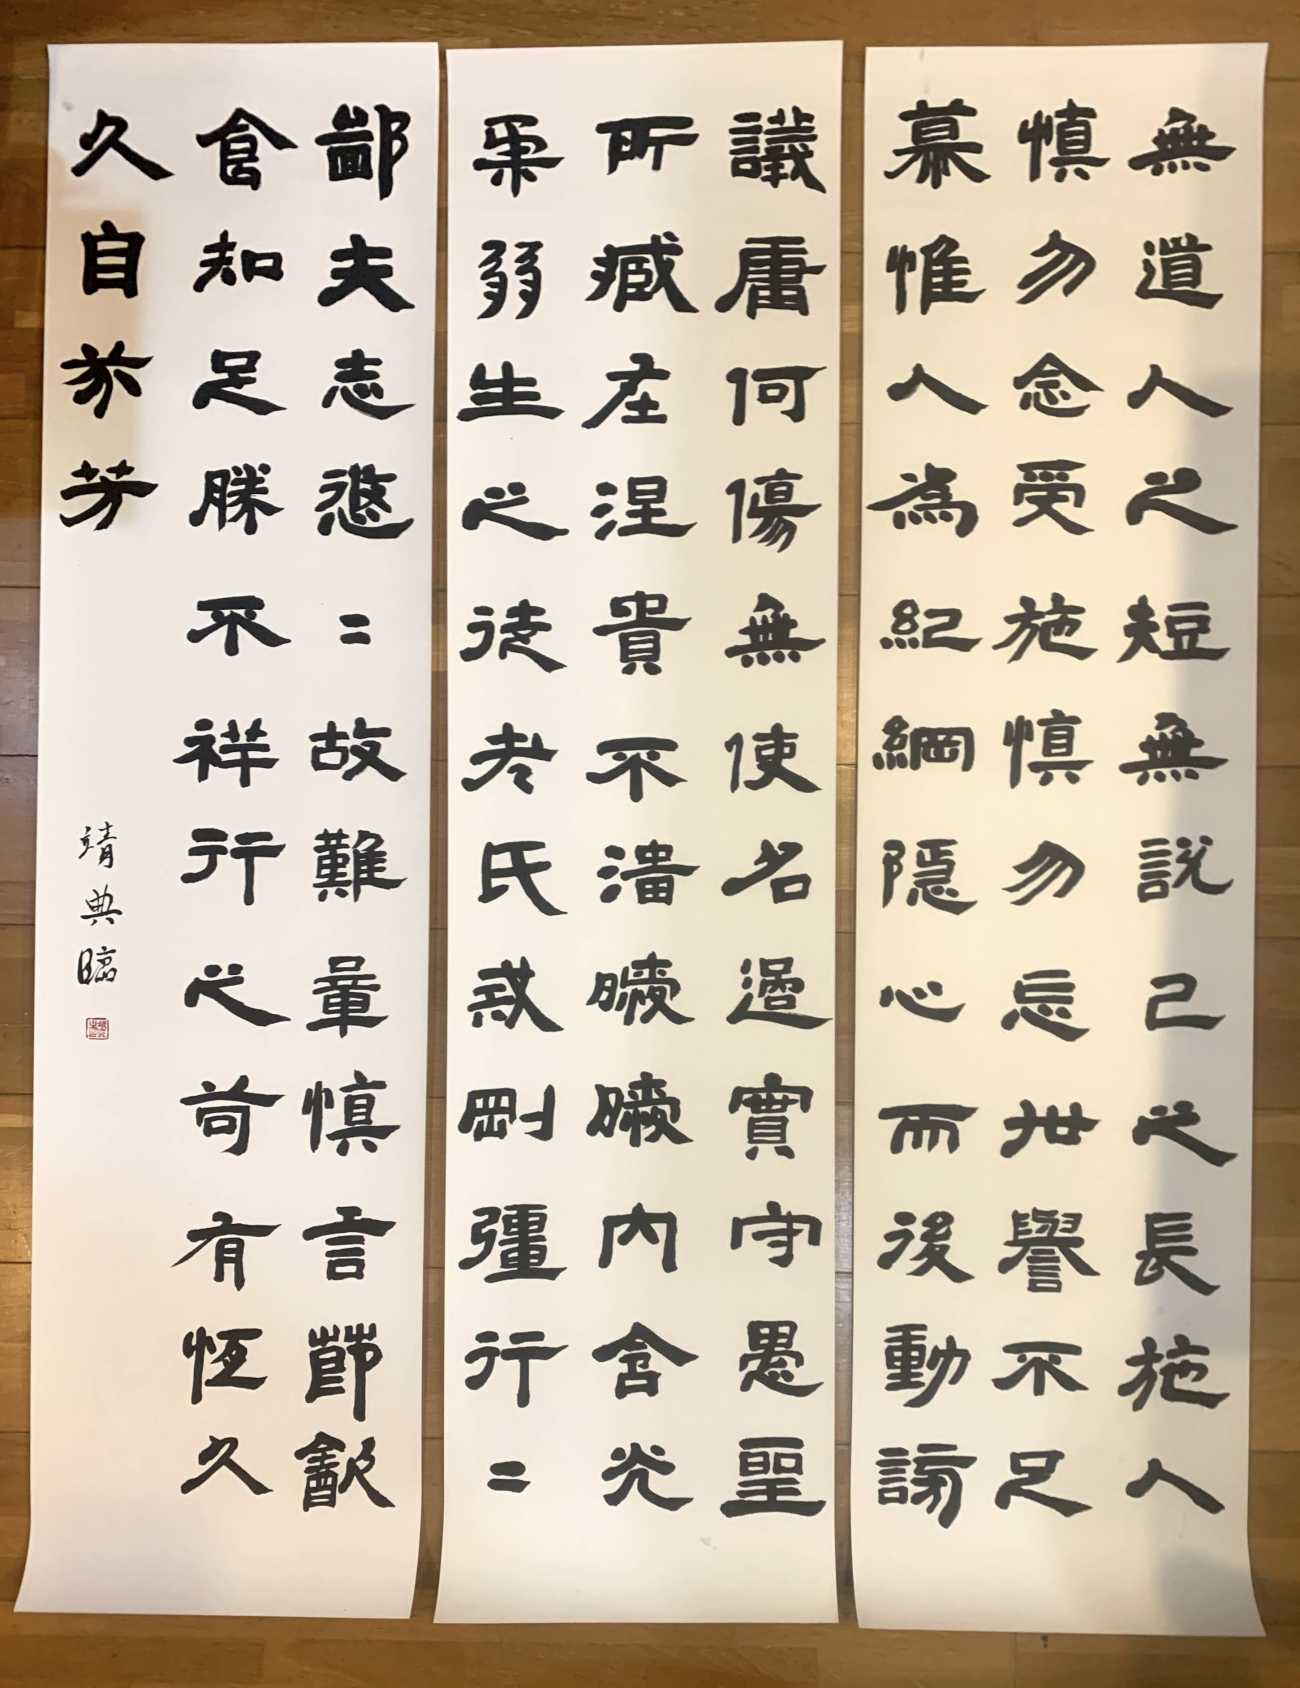 無道人之短無說己之長施人
慎勿念受施慎勿忘世譽不足
慕惟人為紀綱隱心而後動謗
議庸何傷無使名過實守愚聖
所臧在涅貴不淄曖曖內含光
柔弱生之徒老氏戒剛彊行〻
鄙夫志悠〻故難量慎言節飲
食知足勝不祥行之苟有恆久
久自芬芳
靖典臨